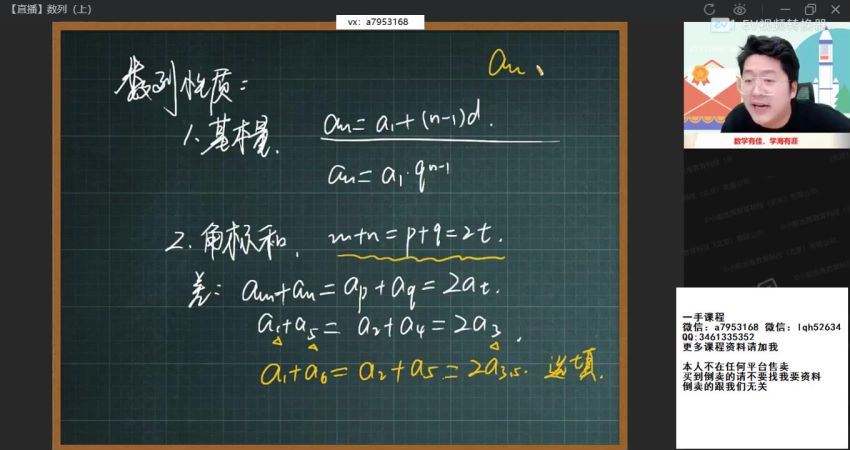 【直播】数列 (上)
vx: a7953168
EV视频转换器
aₙ、
数列性质:
1. 基本量. aₙ=a₁+(n-1)d.
aₙ=a₁·qⁿ⁻¹
2. 角标和. m+n=p+q=2t.
差: aₘ+aₙ=aₚ+a_q=2aₜ.
a₁+a₅=a₂+a₄=2a₃.
a₁+a₆=a₂+a₅=2a₃.₅. 选填.
数学有佳，学海有涯
一手课程
微信: a7953168 微信: lqh52634
QQ:3461335352
更多课程资料请加我
本人不在任何平台售卖
买到倒卖的请不要找我要资料
倒卖的跟我们无关